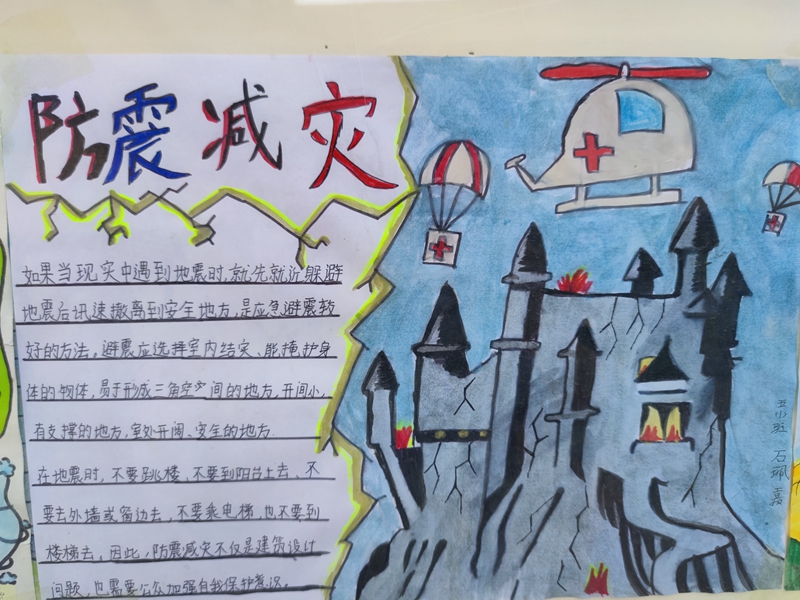 防震减灾
如果当现灾中遇到地震时,就先就近躲避
地震后讯速撤离到安全地方,是应急避震较
好的方法。避震应选择室内结实、能掩护身
体的物体,易于形成三角空间的地方,开间小,
有支撑的地方,室外开阔、安全的地方.
在地震时,不要跳楼、不要到阳台上去、不
要去外墙或窗边去,不要乘电梯,也不要到
楼梯去,因此,防震减灾不仅是建筑设计
问题,也需要公众加强自我保护意识。
石珮嘉